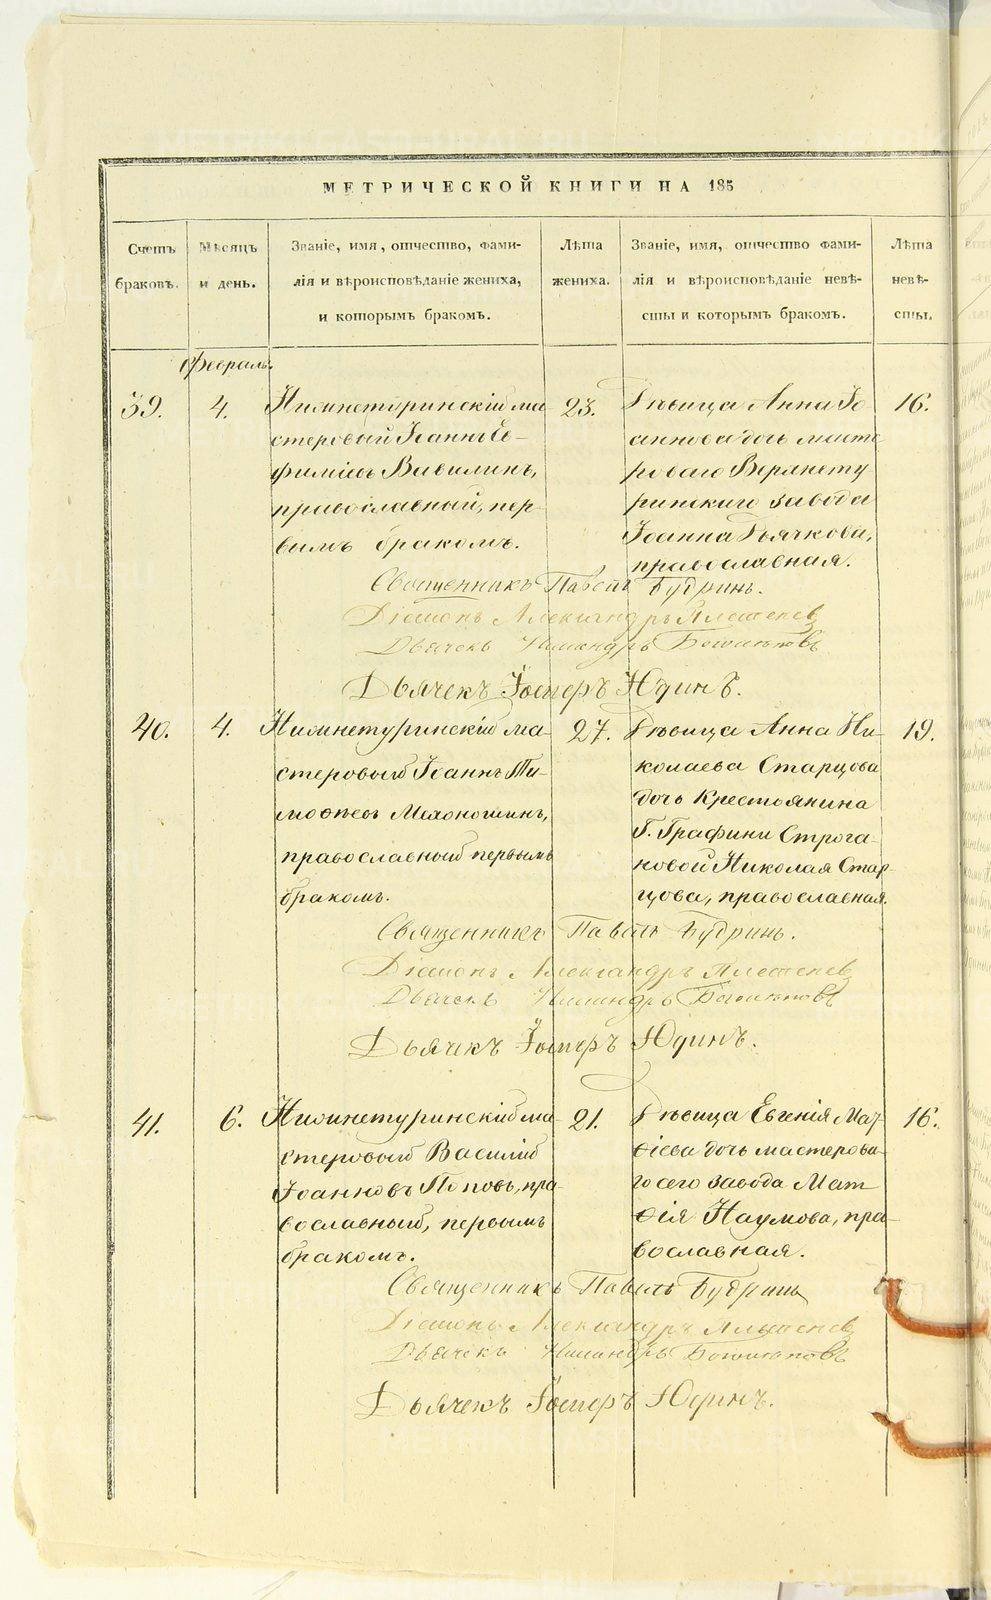 МЕТРИЧЕСКОЙ КНИГИ НА 185
Счетъ браковъ.
Мѣсяцъ и день.
Званіе, имя, отчество, фами-
лія и вѣроисповѣданіе жениха,
и которымъ бракомъ.
Лѣта
жениха.
Званіе, имя, отчество фами-
лія и вѣроисповѣданіе невѣ-
сты и которымъ бракомъ.
Лѣта
невѣ-
сты.
Февраль.
39.
4.
Нижнетуринскій ма-
стеровый Іоаннъ Е-
фиміевъ Вавилинъ,
православный, пер-
вымъ бракомъ.
23.
Дѣвица Анна Іо
аннова дочь масте
роваго Верхнету
ринскаго завода
Іоанна Дьячкова,
православная.
16.
Священникъ Павелъ Будринъ.
Діаконъ Александръ
Дьячекъ
Дьячекъ Іосифъ Юдинъ.
40.
4.
Нижнетуринскій ма-
стеровый Іоаннъ Ти-
моѳеевъ Мехоношинъ,
православный первымъ
бракомъ.
27.
Дѣвица Анна Ни-
колаева Старцова
дочь Крестьянина
Г. Графини Строга-
новой Николая Стар-
цова, православная.
19.
Священникъ Павелъ Будринъ.
Діаконъ Александръ
Дьячекъ
Дьячекъ Іосифъ Юдинъ.
41.
6.
Нижнетуринскій ма-
стеровый Василій
Іоанновъ Поповъ, пра-
вославный, первымъ
бракомъ.
21.
Дѣвица Евгенія Мат-
ѳіева дочь мастерова-
го сего завода Мат
ѳія Наумова, пра-
вославная.
16.
Священникъ Павелъ Будринъ
Діаконъ Александръ
Дьячекъ
Дьячекъ Іосифъ Юдинъ.